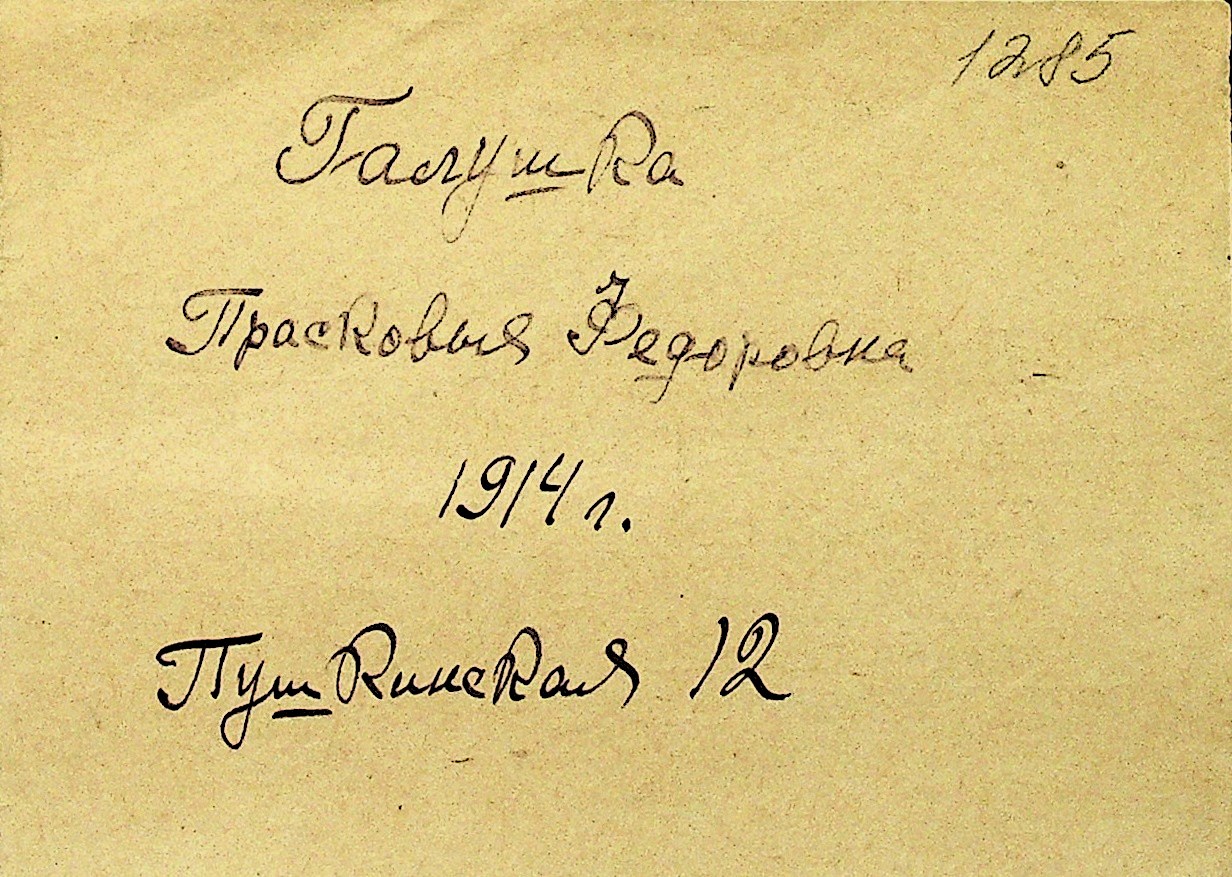 1285
Галушка
Прасковья Федоровна
1914 г.
Пушкинская 12